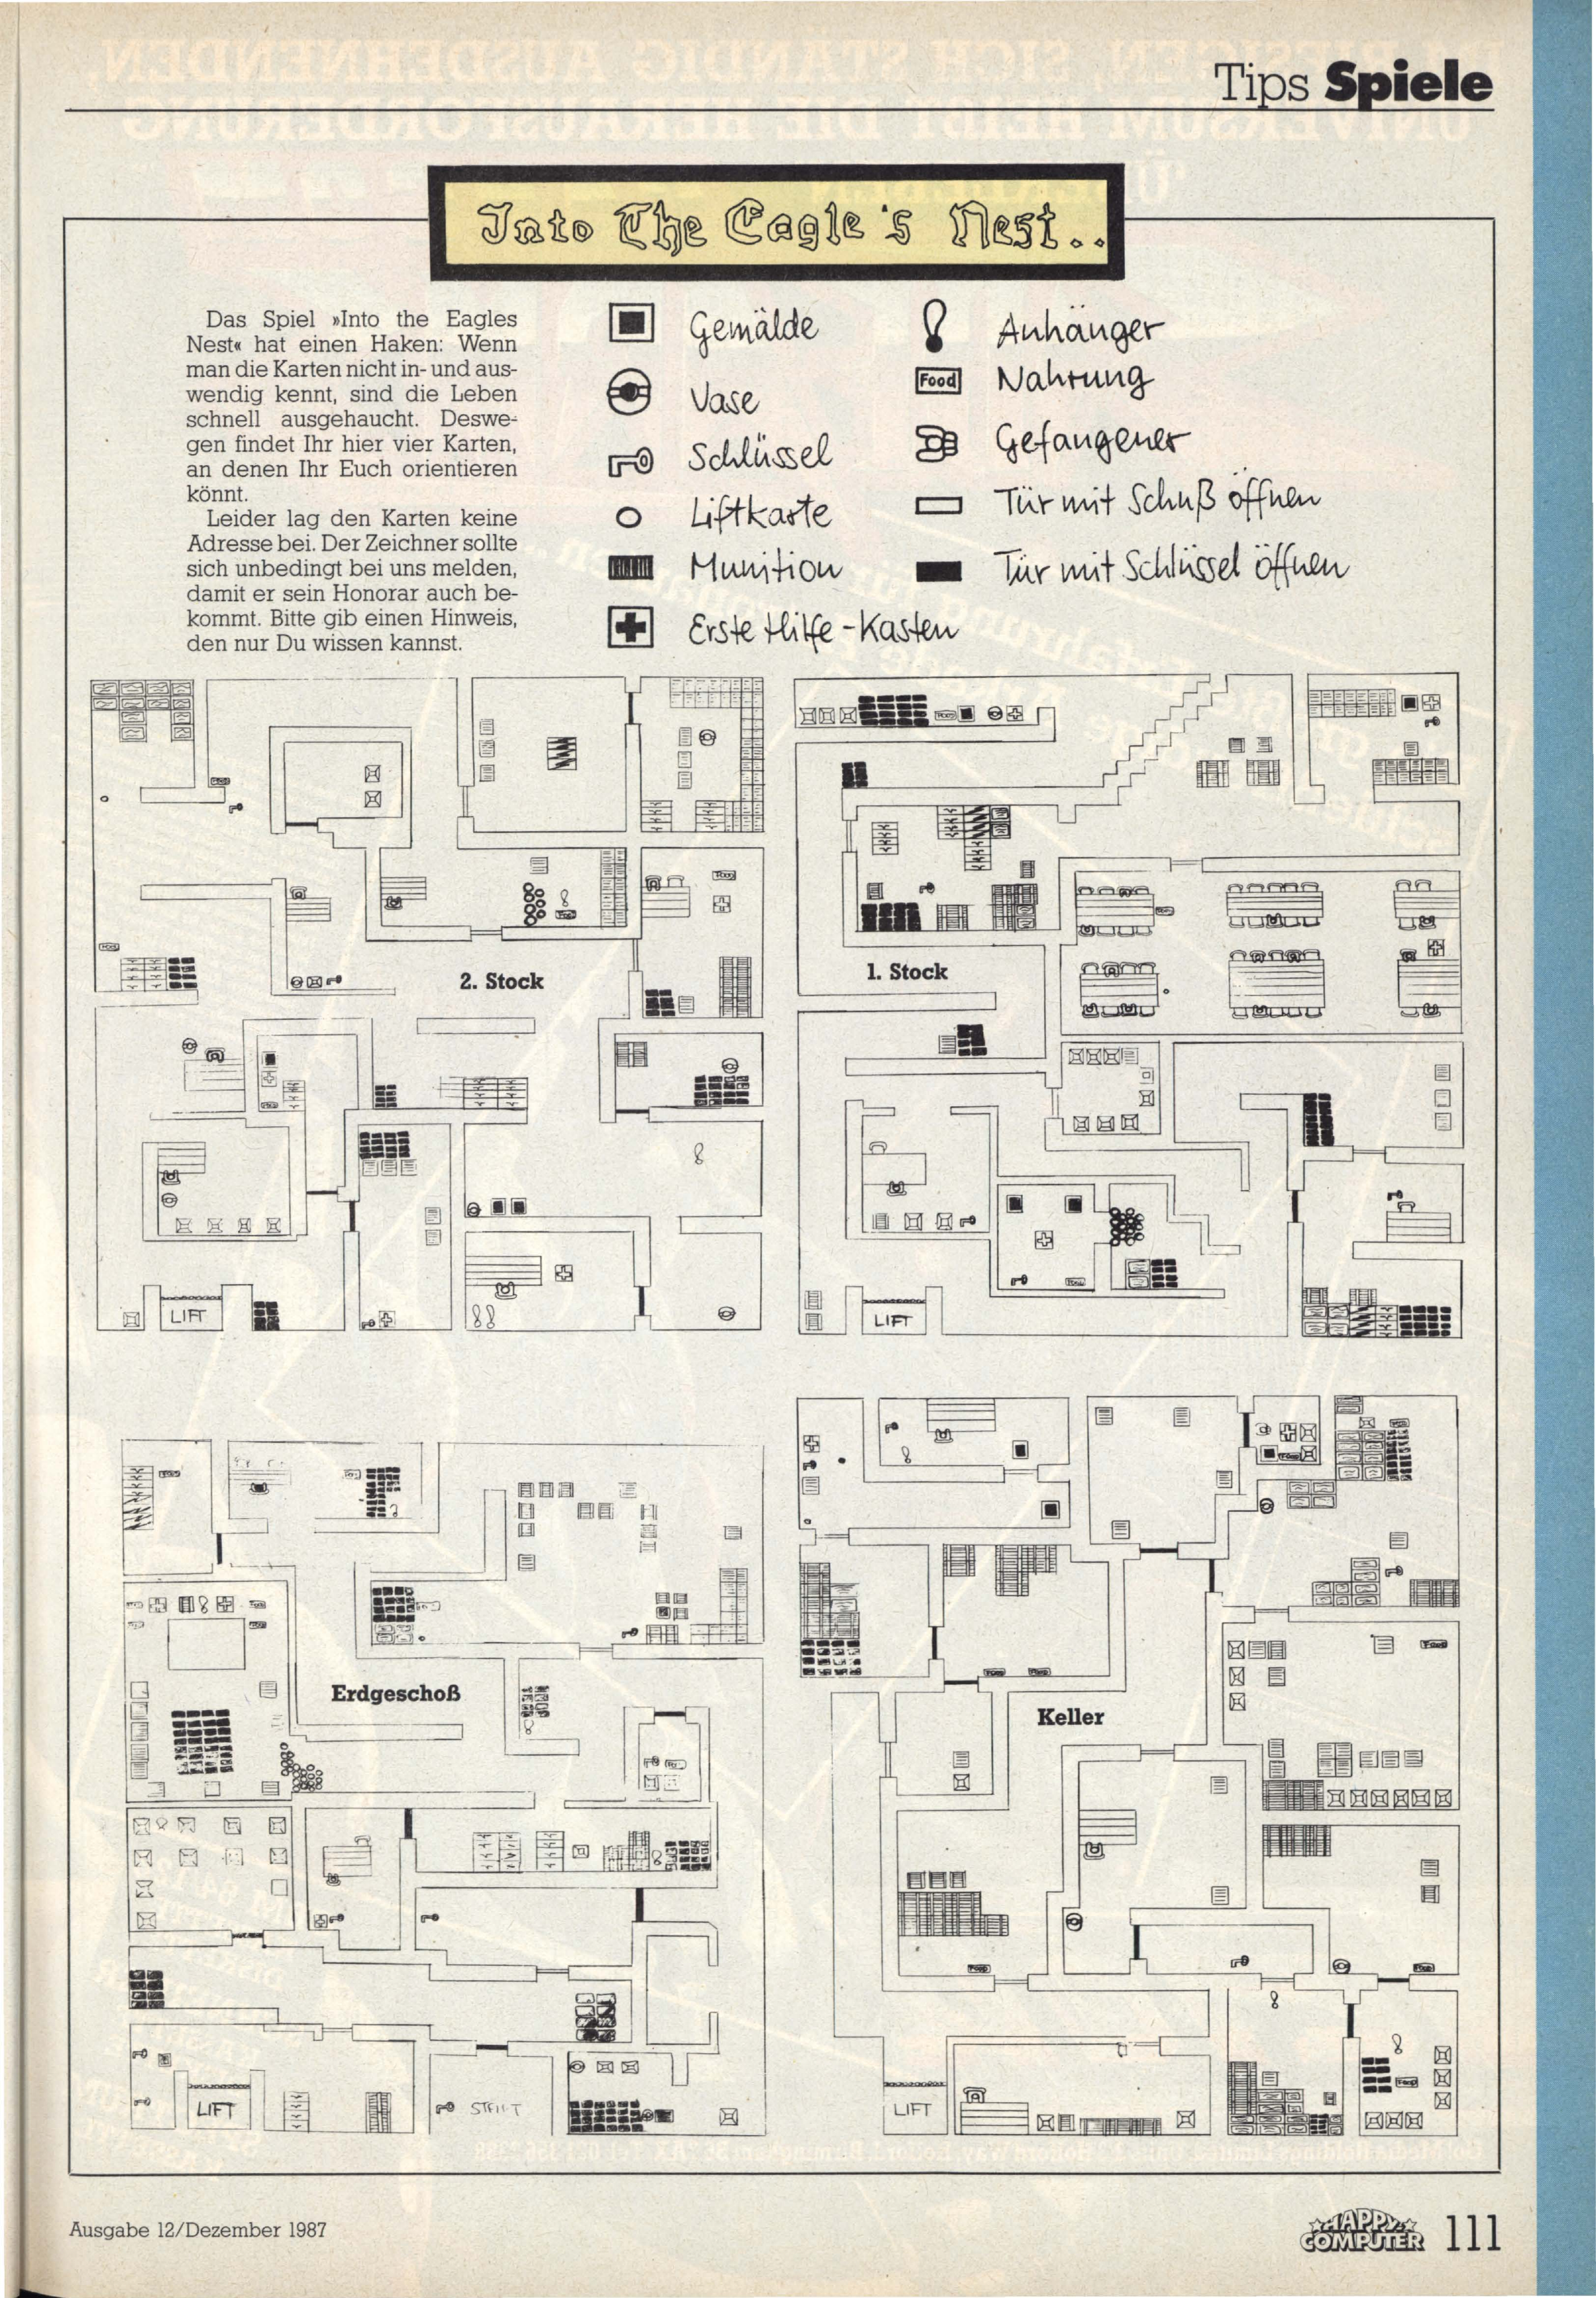 Tips Spiele
Into The Eagle's Nest..
Das Spiel »Into the Eagles
Nest« hat einen Haken: Wenn
man die Karten nicht in- und aus-
wendig kennt, sind die Leben
schnell ausgehaucht. Deswe-
gen findet Ihr hier vier Karten,
an denen Ihr Euch orientieren
könnt.
Leider lag den Karten keine
Adresse bei. Der Zeichner sollte
sich unbedingt bei uns melden,
damit er sein Honorar auch be-
kommt. Bitte gib einen Hinweis,
den nur Du wissen kannst.
Gemälde
Vase
Schlüssel
Liftkarte
Munition
Erste Hilfe-Kasten
Anhänger
Food Nahrung
Gefangener
Tür mit Schuß öffnen
Tür mit Schlüssel öffnen
2. Stock
LIFT
1. Stock
LIFT
Erdgeschoß
LIFT
START
Keller
LIFT
Ausgabe 12/Dezember 1987
HAPPY
COMPUTER 111